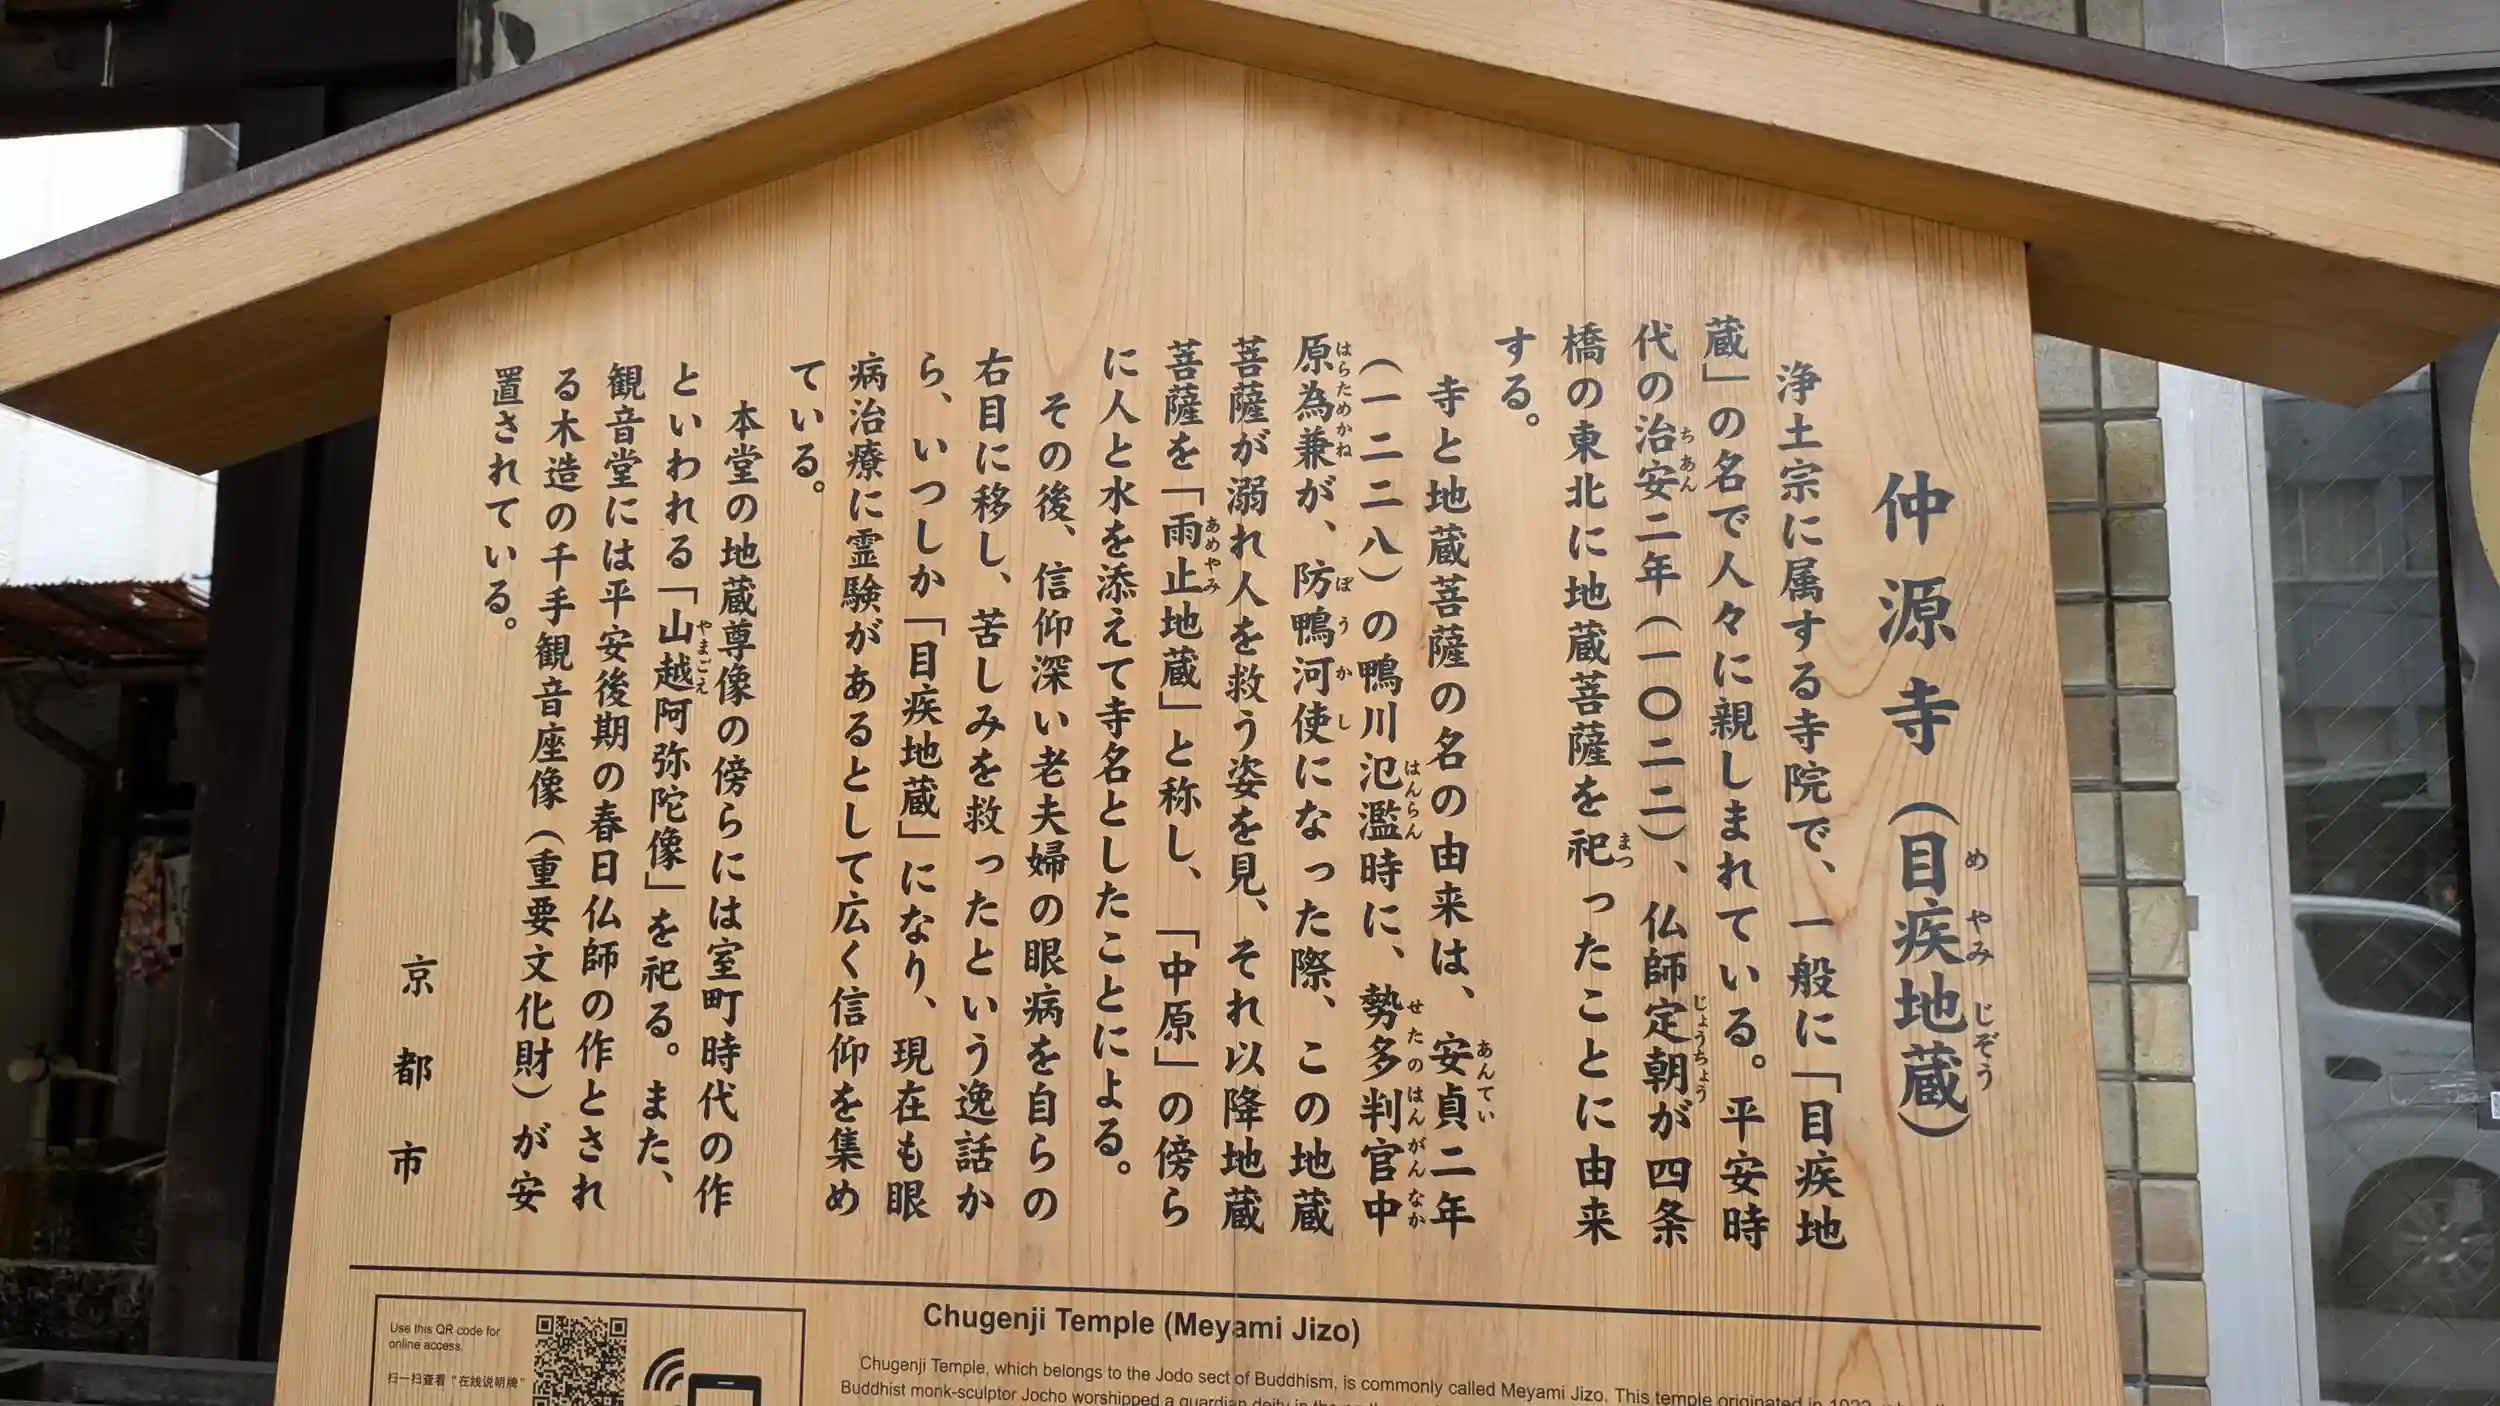 仲源寺(目疾地蔵)
めやみじぞう
浄土宗に属する寺院で、一般に「目疾地
蔵」の名で人々に親しまれている。平安時
代の治安二年(一〇二二)、仏師定朝が四条
ちあん
じょうちょう
橋の東北に地蔵菩薩を祀ったことに由来
まつ
する。
寺と地蔵菩薩の名の由来は、安貞二年
あんてい
(一二二八)の鴨川氾濫時に、勢多判官中
はんらん
せたのはんがんなか
原為兼が、防鴨河使になった際、この地蔵
はらためかね
ぼうかし
菩薩が溺れ人を救う姿を見、それ以降地蔵
菩薩を「雨止地蔵」と称し、「中原」の傍ら
あめやみ
に人と水を添えて寺名としたことによる。
その後、信仰深い老夫婦の眼病を自らの
右目に移し、苦しみを救ったという逸話か
ら、いつしか「目疾地蔵」になり、現在も眼
病治療に霊験があるとして広く信仰を集め
ている。
本堂の地蔵尊像の傍らには室町時代の作
といわれる「山越阿弥陀像」を祀る。また、
やまごえ
観音堂には平安後期の春日仏師の作とされ
る木造の千手観音座像(重要文化財)が安
置されている。
京都市
Chugenji Temple (Meyami Jizo)
Chugenji Temple, which belongs to the Jodo sect of Buddhism, is commonly called Meyami Jizo. This temple originated in 1022
Buddhist monk-sculptor Jocho worshipped a guardian deity in the
Use this QR code for
online access.
扫一扫查看“在线说明牌”